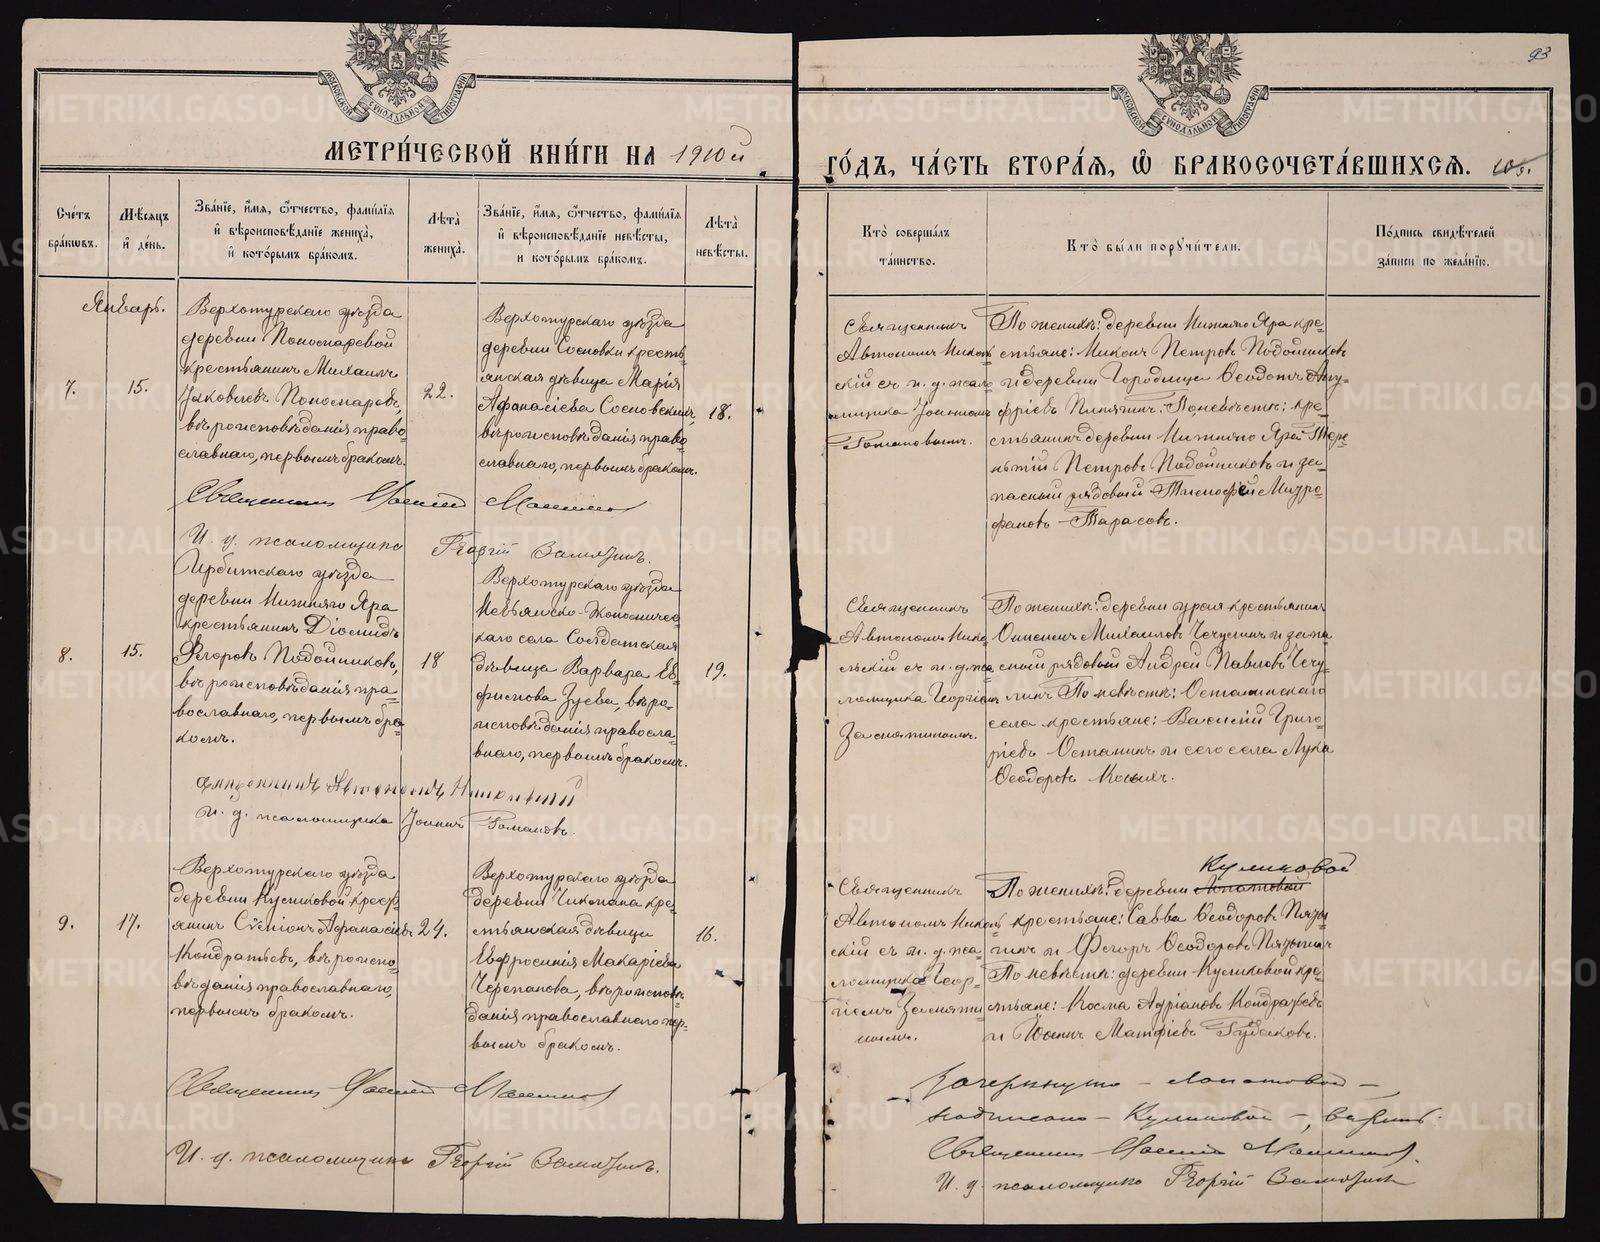 93
МОСКОВСКОЙ СѴНОДАЛЬНОЙ ТИПОГРАФІИ
МОСКОВСКОЙ СѴНОДАЛЬНОЙ ТИПОГРАФІИ
МЕТРИ́ЧЕСКОЙ КНИ́ГИ НА 1910й
ГО́ДЪ, ЧА́СТЬ ВТОРА́Я, Ѡ БРАКОСОЧЕТА́ВШИХСЯ.
Сче́тъ бра́кѡвъ.
Мѣ́сяцъ и де́нь.
Зва́нїе, и́мя, ѻ҆́тчество, фами́лїя и вѣроисповѣ́данїе жениха̀, и кото́рымъ бра́комъ.
Лѣ́та жениха̀.
Зва́нїе, и́мя, ѻ҆́тчество, фами́лїя и вѣроисповѣ́данїе невѣ́сты, и кото́рымъ бра́комъ.
Лѣ́та невѣ́сты.
Кто̀ соверша́лъ та́инство.
Кто̀ бы́ли порꙋчи́тели.
По́дпись свидѣ́телей за́писи по жела́нїю.
Январь.
7.
15.
Верхотурскаго уѣзда
деревни Пономаревой
крестьянинъ Михаилъ
Іаковлевъ Пономаревъ,
вѣроисповѣданія право-
славнаго, первымъ бракомъ.
22.
Верхотурскаго уѣзда
деревни Сосновки кресть-
янская дѣвица Марія
Афанасіева Сосновскихъ,
вѣроисповѣданія право-
славнаго, первымъ бракомъ.
18.
Священникъ
Автономъ Николь-
скій съ и. д. псало-
мщика Іоанномъ
Romановымъ.
По женихѣ: деревни Нижняго Яра кре-
стьяне: Никонъ Петровъ Подойниковъ
и деревни Городища Ѳеодотъ Ану-
фріевъ По невѣстѣ: кре-
стьянинъ деревни Нижняго Яра Тере-
нтій Петровъ Подойниковъ и за-
пасный рядовый Тимофей Митро-
фановъ Тарасовъ.
Священникъ
И. д. псаломщика Георгій
8.
15.
Ирбитскаго уѣзда
деревни Нижняго Яра
крестьянинъ Діомидъ
Егоровъ Подойниковъ,
вѣроисповѣданія пра-
вославнаго, первымъ бра-
комъ.
18
Верхотурскаго уѣзда
Невьянско-Экономичес-
каго села Солдатская
дѣвица Варвара Ев-
фимова Зуева, вѣро-
исповѣданія правосла-
внаго, первымъ бракомъ.
19.
Священникъ
Автономъ Нико-
льскій съ и. д. пса-
ломщика Георгіемъ
По женихѣ: деревни крестьянинъ
Михаиловъ Чечулинъ и запа-
сный рядовый Андрей Павловъ Чечу-
линъ По невѣстѣ: Останинскаго
села крестьяне: Василій Григо-
ріевъ Останинъ и сего села Лука
Ѳеодоровъ Косыхъ.
Священникъ Автономъ Никольскій
и. д. псаломщика Іоаннъ Романовъ.
9.
17.
Верхотурскаго уѣзда
деревни Куликовой крест-
янинъ Сѵмеонъ Афанасіевъ
Кондратьевъ, вѣроиспо-
вѣданія православнаго,
первымъ бракомъ.
24.
Верхотурскаго уѣзда
деревни Чикмана кре-
стьянская дѣвица
Евфросинія Макаріева
Черепанова, вѣроисповѣ-
данія православнаго пер-
вымъ бракомъ.
16.
Священникъ
Автономъ Николь-
скій съ и. д. пса-
ломщика Геор-
гіемъ
Куликовой
По женихѣ: деревни Лопатовой
крестьяне: Савва Ѳеодоровъ
и Егоръ Ѳеодоровъ
По невѣстѣ: деревни Куликовой кре-
стьяне: Косма Адріановъ Кондратьевъ
и Іоаннъ Матфіевъ
Священникъ
И. д. псаломщика Георгій
Зачеркнуто – Лопатовой –
надписано – Куликовой –, вѣрно.
Священникъ
И. д. псаломщика Георгій
METRIKI.GASO-URAL.RU